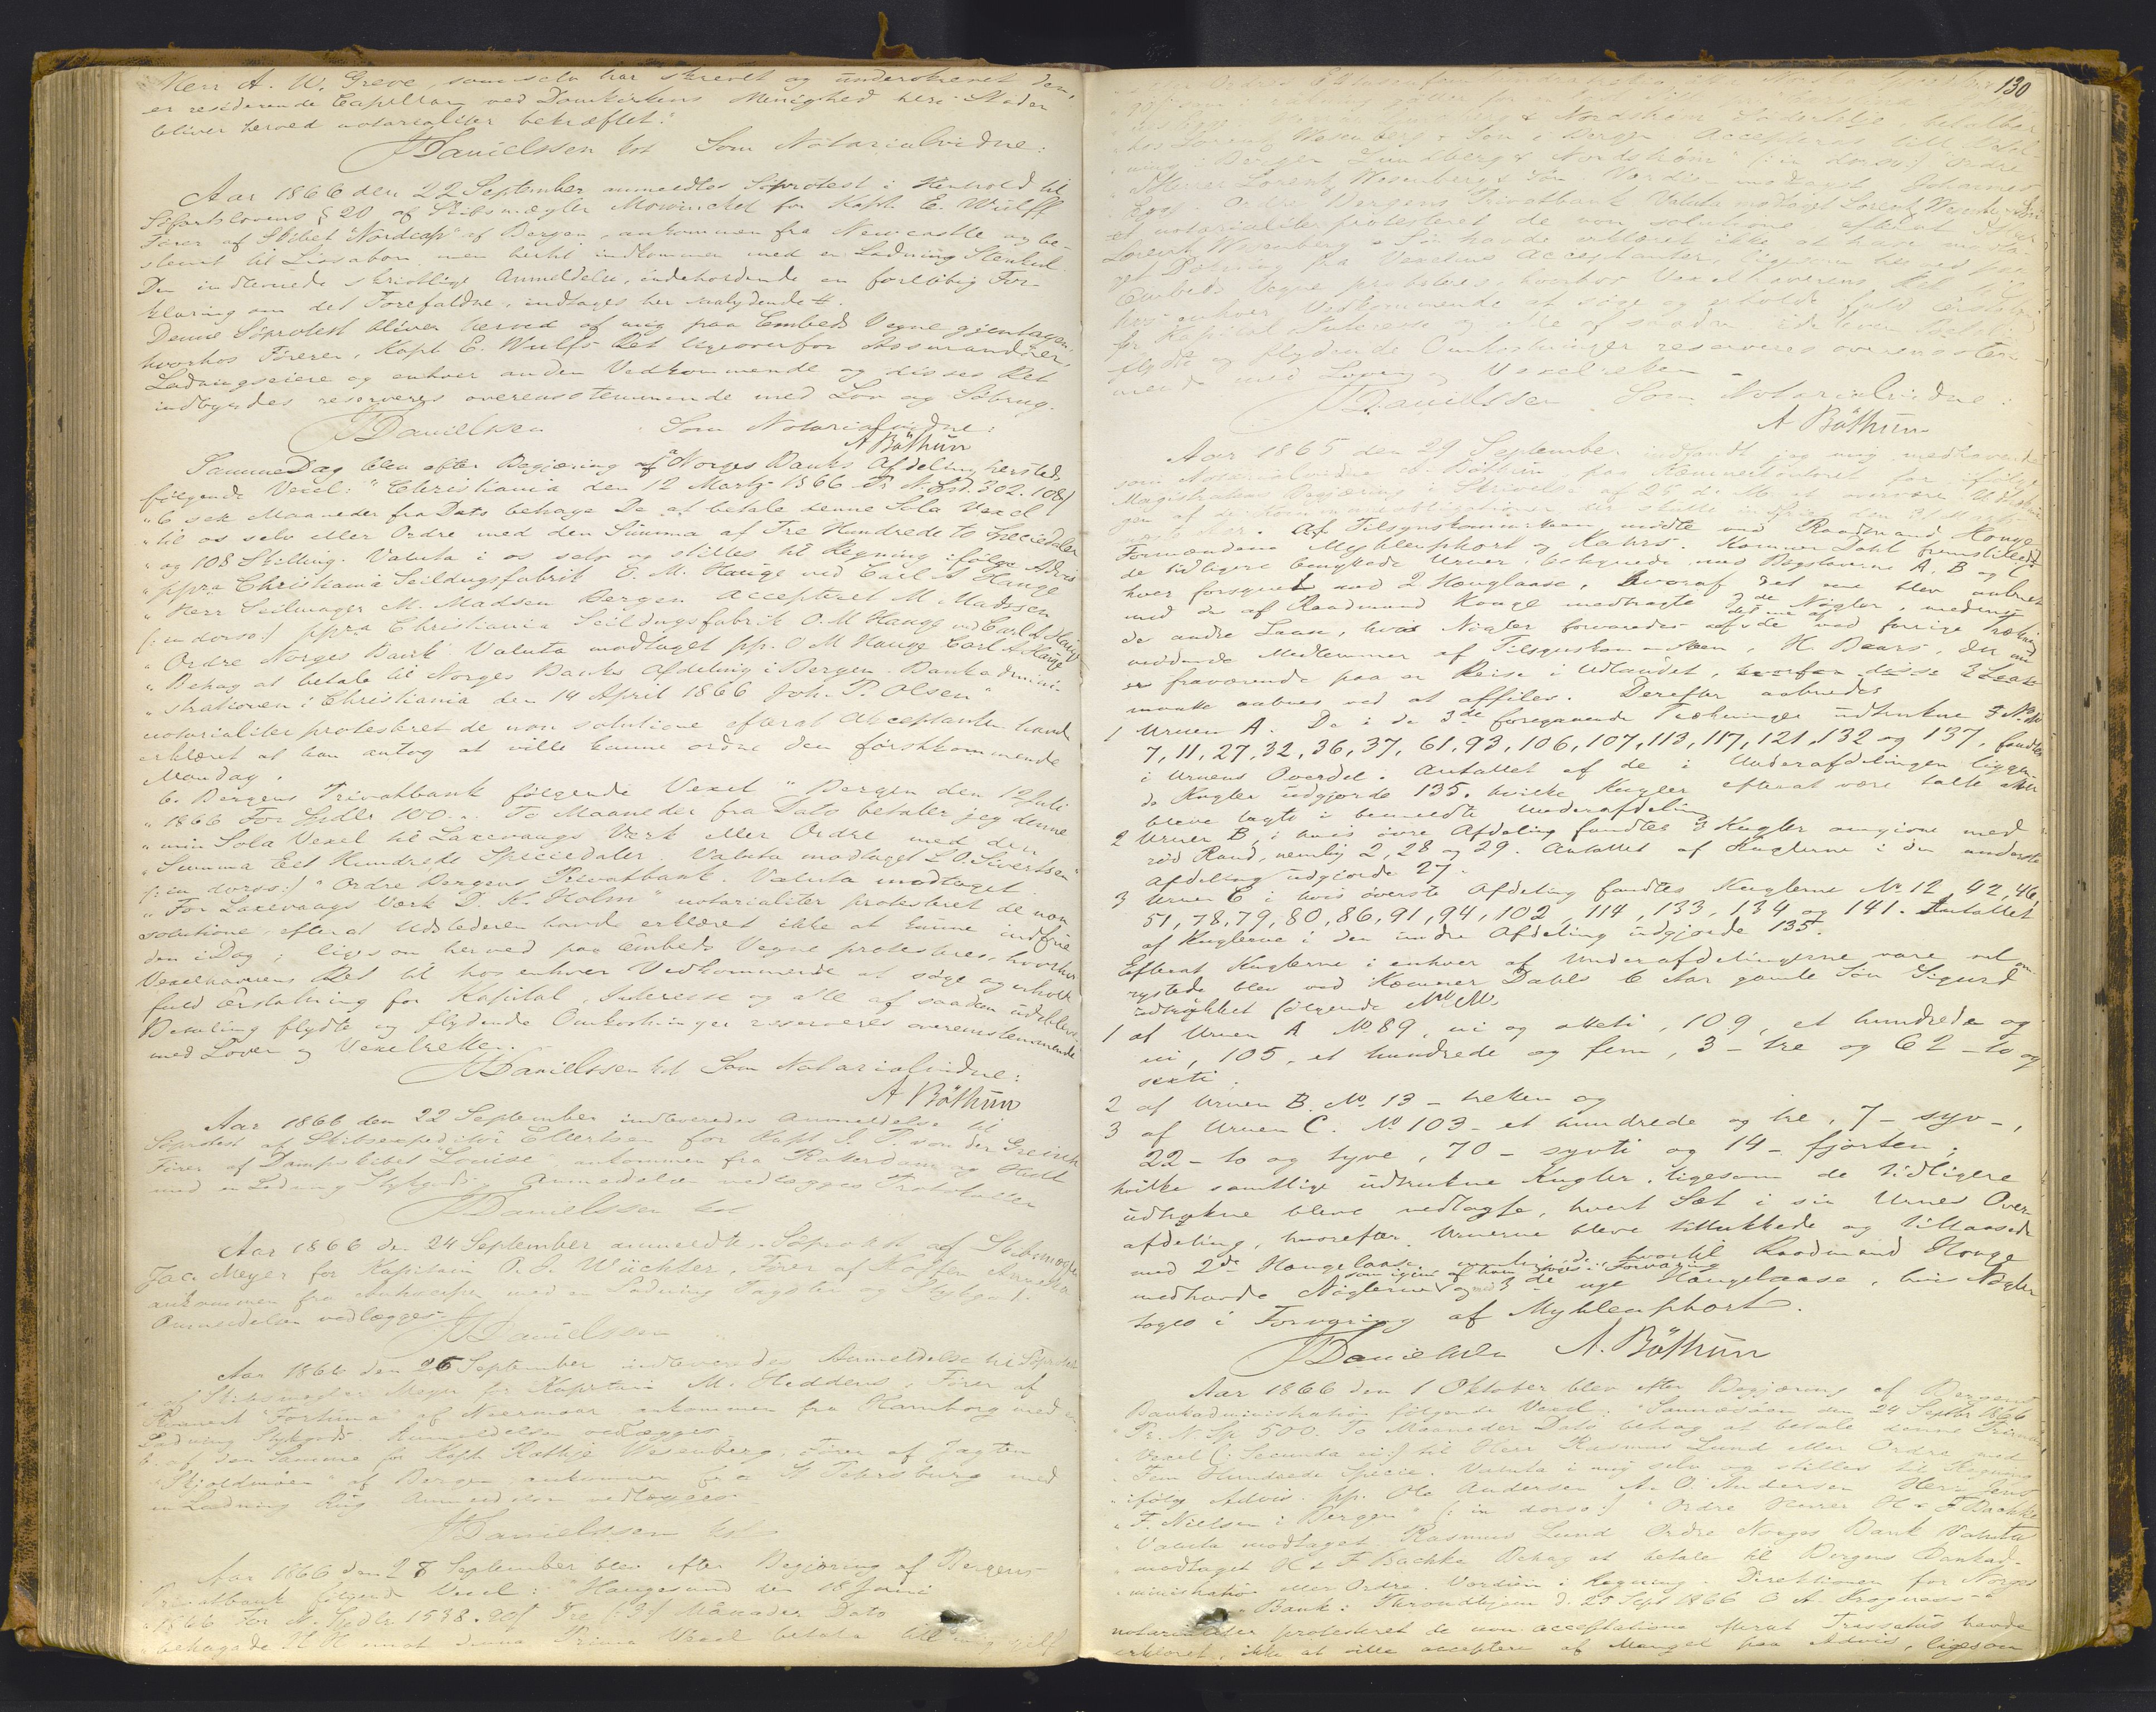 Herr A. W. Greve, som selv har skrevet og underskrevet den,
er residerende Capellan ved Domkirkens Menighed her i Staden
bliver herved notarialiter bekræftet."
JDanielssen kst Som Notarialvidne:
Aar 1866 den 22 September anmeldtes Söprotest i Henhold til
Söfartslovens § 20 af Skibsmægler Mowinckel for Kapt. E. Wulff
Förer af Skibet "Nordcap" af Bergen, ankommen fra Newcastle og be-
stemt til Lissabon men hertil indkommen med en Ladning Stenkul.
Den indleverede skriftlige Anmeldelse, indeholdende en forlöbig For-
klaring om det Forefaldne, indtages her saalydende
Denne Söprotest bliver herved af mig paa Embeds Vegne gjentagen,
hvorhos Förerens, Kapt E. Wulfs Ret ligeoverfor Assurandörer,
Ladningseiere og enhver anden Vedkommende og disses Ret
indbyrdes reserveres overensstemmende med Lov og Söbrug.
JDanielssen Som Notarialvidne:
A Böthun
Samme Dag blev efter Begjæring af a Norges Banks Afdeling hersteds
fölgende Vexel: "Christiania den 12 Marts 1866 Pr N. Spd. 302. 108 ſ
"6 sex Maaneder fra Dato behage De at betale denne Sola Vexel
"til os selv eller Ordre med den Summa af Tre Hundrede to Speciedaler
"og 108 Skilling. Valuta i os selv og stilles til Regning ifölge Advis
"ppra Christiania Seildugsfabrik O. M. Hauge ved Carl A Hauge
"Herr Seilmager M. Madsen Bergen Accepteret M Madssen
(: in dorso:) ppra Christiania Seildugsfabrik O. M Hauge ved Carl A Hauge
"Ordre Norges Bank Valuta modtaget pp. O M Hauge Carl A Hauge
"Behag at betale til Norges Banks Afdeling i Bergen. Bankadmini-
"strationen i Christiania den 14 April 1866 Joh. P. Olsen"
notarialiter protesteret de non solutione efterat Acceptanten havde
erklæret at han antog at ville kunne ordne den förstkommende
Mandag.
b. Bergens Privatbank fölgende Vexel "Bergen den 19 Juli
"1866 For Spdlr 100.. To Maaneder fra Dato betaler jeg denne
"min Sola Vexel til Laxevaags Værk eller Ordre med den
"Summa Eet Hundrede Speciedaler. Valuta modtaget L. O. Sivertsen"
(: in dorso:) "Ordre Bergens Privatbank. Valuta modtaget
"For Laxevaags Værk D. K. Holm" notarialiter protesteret de non
solutione, efterat Udstederen havde erklæret ikke at kunne indfrie
den i Dag; ligesom herved paa Embeds Vegne protesteres, hvorhos
Vexelhaverens Ret til hos enhver Vedkommende at söge og erholde
fuld Erstatning for Kapital, Interesse og alle af saadan udebleven
Betaling flydte og flydende Omkostninger reserveres overensstemmende
med Loven og Vexelretten.
JDanielssen kst Som Notarialvidne:
A Böthun
Aar 1866 den 22 September indleveredes Anmeldelse til
Söprotest af Skibsexpeditör Ellertsen for Kapt J. P. von der
Förer af Dampskibet "Louise" ankommen fra Roterdam og
med en Ladning Stykgods. Anmeldelsen vedlægges Protokollen
JDanielssen kst
Aar 1866 den 24 September anmeldtes Söprotest af Skibsmægler
Jac. Meyer for Kapitain P. J. Wächter, Förer af Koffen
ankommen fra Antwerpen med en Ladning Tagsten og Stykgods.
Anmeldelsen vedlægges.
JDanielssen
Aar 1866 den 26 September indleveredes Anmeldelse til Söprotest
a. af Skibsmægler Meyer for Kapitain M. Heddens, Förer af
"Fortuna" af Neermoor ankommen fra Hamborg med en
Ladning Stykgods. Anmeldelsen vedlægges
b. af den Samme for Kapt Rathje Wesenberg, Förer af Jagten
"Skjoldmöen" af Bergen ankommen fra St Petersburg med
en Ladning Rug Anmeldelsen vedlægges.
JDanielssen kst
Aar 1866 den 28 September blev efter Begjæring af Bergens
Privatbank fölgende Vexel: "Haugesund den 18 Juni
"1866 For N. Spdlr. 1538. Tre (:3:) Månader Dato
"behagade H H emot denna Prima Vexel betala till mig sjelf
130
& Nordström Söderteljé, betalbar
"hos Lorentz Wesenberg & Sön i Bergen. Accepteras till betal-
"ning i Bergen Lundberg & Nordström" (: in dorso:) Ordre
Herrer Lorentz Wesenberg & Sön Værdien modtaget Johannes
Ordre Bergens Privatbank Valuta modtaget Lorentz Wesenberg & Sön
notarialiter protesteret de non solutione, efterat
Lorentz Wesenberg & Sön havde erklæret ikke at have
Dækning fra Vexelens Acceptanter, ligesom herved paa
Embeds Vegne protesteres, hvorhos Vexelhaverens Ret til
hos enhver Vedkommende at söge og erholde fuld Erstatning
for Kapital Interesse og alle af saadan udebleven Betaling
flydte og flydende Omkostninger reserveres overensstem-
mende med Loven og Vexelretten.
JDanielssen Som Notarialvidne:
A Böthun
Aar 1865 den 29 September indfandt jeg mig medhavende
som Notarialvidne A. Böthun paa Kæmnerkontoret for ifölge
Magistratens Begjæring i Skrivelse af 25 d. M. at overvære Udtræknin-
gen af de Kommuneobligationer der skulle indfries den 31 Marts
næste Aar. Af Tilsynskommissionen mödte ved Raadmand Konge
Formændene Myhlenphort og Kahrs. Kæmner Dahl fremstillede
de tidligere benyttede Urner, betegnede med Bogstaverne A, B og C
hver forsynet med 2 Hænglaase, hvoraf det ene blev aabnet
med de af Raadmand Konge medbragte 3de Nögler, medens
de andre Laase, hvis Nögler forvaredes af det ene af de ved forrige Trækning
meddende Medlemmer af Tilsynskommissionen, K. Beers, der nu
er fraværende paa en Reise i Udlandet, hvorfor disse 3 Laase
maatte aabnes ved at affiles. Derefter aabnedes
1 Urnen A. De i de 3de foregaaende Trækninger udtrukne No
7, 11, 27, 32, 36, 37, 61, 93, 106, 107, 113, 117, 121, 132 og 137, fandtes
i Urnens Overdel. Antallet af de i Underafdelingen liggen-
de Kugler udgjorde 135, hvilke Kugler efterat være talte atter
bleve lagte i benævnte Underafdeling
2 Urnen B, i hvis övre Afdeling fandtes 3 Kugler omgivne med
röd Rand, nemlig 2, 28 og 29. Antallet af Kuglerne i den underste
Afdeling udgjorde 27.
3 Urnen C i hvis överste Afdeling fandtes Kuglerne No 12, 42, 46,
51, 78, 79, 80, 86, 91, 94, 102, 114, 133, 134 og 141. Antallet
af Kuglerne i den undre Afdeling udgjorde 135.
Efterat Kuglerne i enhver af Underafdelingerne vare vel om-
rystede blev ved Kæmner Dahls 6 Aar gamle Sön Sigurd
udtrukket fölgende No.
1 af Urnen A No 89, ni og otteti, 109, et hundrede og
ni, 105, et hundrede og fem, 3 - tre og 62 - to og
sexti,
2 af Urnen B. No 13 - tretten og
3 af Urnen C. No 103 - et hundrede og tre, 7 - syv -,
22 - to og tyve, 70 - syvti og 14 - fjorten;
hvilke samtlige udtrukne Kugler, ligesom de tidligere
udtrukne bleve nedlagte, hvert Sæt i sin Urnes Over-
afdeling, hvorefter Urnerne bleve tillukkede og tillaasede
med 2de Hængelaase, hvortil Raadmand Konge
medhavde Nöglerne som igjen af ham toges i Forvaring og med 3de nye Hængelaase, hvis Nögler
toges i Forvaring af Myhlenphort.
JDanielssen A. Böthun
Aar 1866 den 1 Oktober blev efter Begjæring af Bergens
Bankadministration fölgende Vexel: "Sannæsöen den 24 Septbr 1866
"Pr. N. Sp 500. To Maaneder Dato behag at betale denne Prima
"Vexel (: Secunda ei:) til Herr Rasmus Lund eller Ordre med
"Fem Hundrede Specie. Valuta i mig selv og stilles til Regning
"ifölg Advis. pp. Ole Andersen A. O. Andersen Herr Jens
"F. Nielsen i Bergen" (: in dorso:) "Ordre Herrer H & F Bachke
"Valuta modtaget Rasmus Lund Ordre Norges Bank Valuta
"modtaget H & F Bachke Behag at betale til Bergens Bankad-
"ministration eller Ordre. Værdien i Regning. Direktionen for Norges
"Bank: Throndhjem d. 25 Sept 1866 C A. Krogness"
notarialiter protesteret de non acceptatione efterat Trassatus havde
erklæret, ikke at ville acceptere af Mangel paa Advis, ligesom